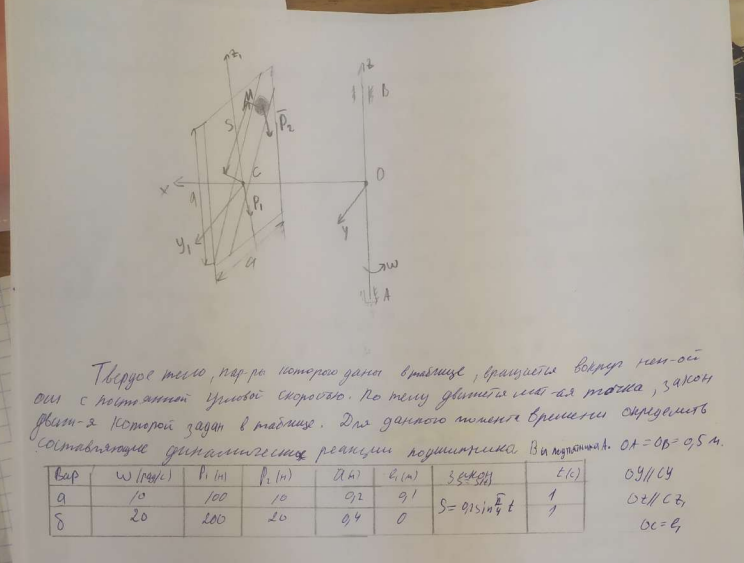 z₁
z
B
M
S
P̄₂
C
O
x
a
P₁
y₁
y
a
ω
A
Твердое тело, пар-ры которого даны в таблице, вращается вокруг неп-ой
оси с постоянной угловой скоростью. По телу движется мат-ая точка, закон
движ-я которой задан в таблице. Для данного момента времени определить
составляющие динамической реакции подшипника В и подпятника А. OA=OB=0,5 м.
Вар ω(рад/с) P₁(н) P₂(н) a(м) e₁(м) Закон t(с) OY∥CY
а 10 100 10 0,2 0,1 S=0,1sin π/4 t 1 Oz∥Cz₁
б 20 200 20 0,4 0 1 OC=e₁